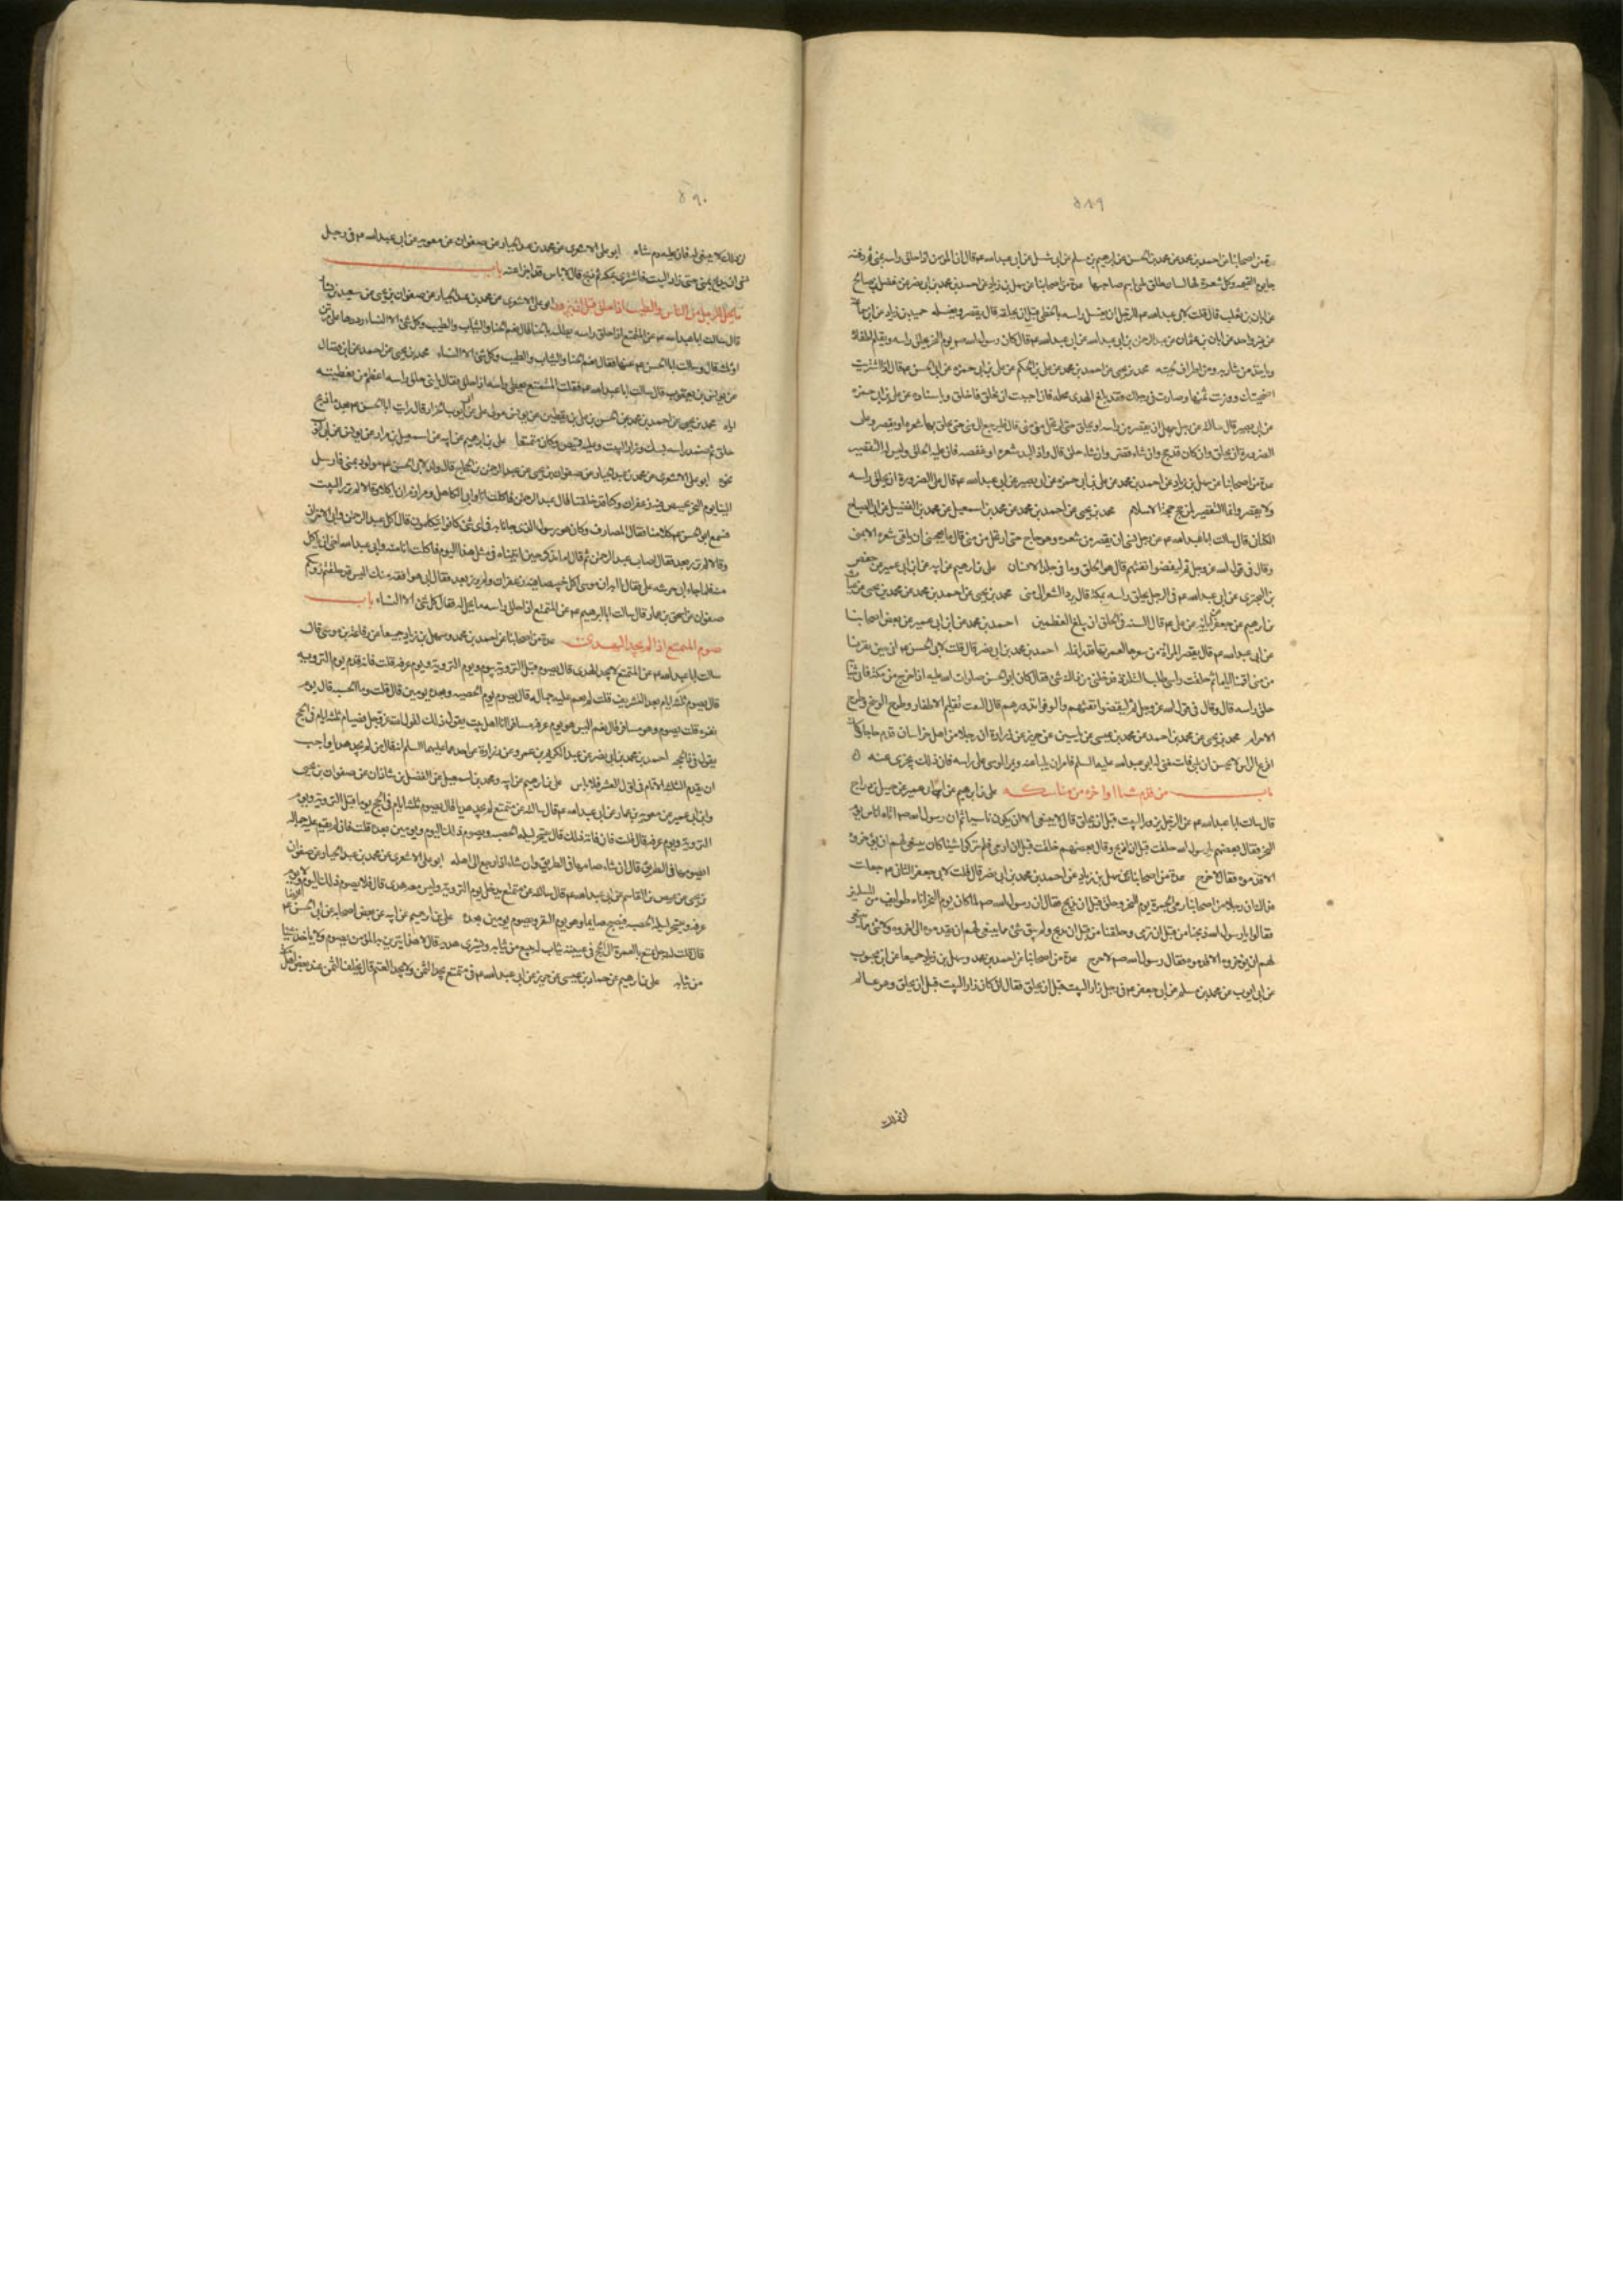 ٥٨٩
عدة من اصحابنا عن احمد بن محمد عن محمد بن الحسن عن ابرهيم بن مسلم عن ابى شبل عن ابى عبد الله ع قال ان المؤمن اذا حلق راسه بمنى ثم دفنه
جا يوم القيمه وكل شعرة لها لسان طلق تلبى باسم صاحبها عدة من اصحابنا عن سهل بن زياد عن احمد بن محمد بن ابى نصر عن مفضل بن صالح
عن ابان بن تغلب قال قلت لابى عبد الله ع للرجل ان يغسل راسه بالخطمى قبل ان يحلقه قال يقصر ويغسله حميد بن زياد عن ابن سماعة
عن غير واحد عن ابان بن عثمان عن عبد الرحمن بن ابى عبد الله عن ابى عبد الله ع قال كان رسول الله ص يوم النحر يحلق راسه ويقلم اظفاره
وياخذ من شاربه ومن اطراف لحيته محمد بن يحيى عن احمد بن محمد عن على بن الحكم عن على بن ابى حمزه عن ابى الحسن ع قال اذا اشتريت
اضحيتك ووزنت ثمنها وصارت فى رحلك فقد بلغ الهدى محله فان احببت ان تحلق فاحلق وباسناده عن على بن ابى حمزه
عن ابى بصير قال سالته عن رجل جهل ان يقصر من راسه او يحلق حتى ارتحل من منى قال فليرجع الى منى حتى يحلق بها شعره او يقصر وعلى
الصرورة ان يحلق وان كان قد حج فان شاء قصر وان شاء حلق قال واذا لبد شعره او عقصه فان عليه الحلق وليس له التقصير
عدة من اصحابنا عن سهل بن زياد عن احمد بن محمد عن على بن ابى حمزه عن ابى بصير عن ابى عبد الله ع قال على الصرورة ان يحلق راسه
ولا يقصر وانما التقصير لمن حج حجة الاسلام محمد بن يحيى عن احمد بن محمد عن محمد بن اسمعيل عن محمد بن الفضيل عن ابى الصباح
الكنانى قال سالت ابا عبد الله ع عن رجل نسى ان يقصر من شعره وهو حاج حتى ارتحل من منى قال ما يعجبنى ان يلقى شعره الا بمنى
وقال فى قول الله عز وجل ثم ليقضوا تفثهم قال هو الحلق وما فى جلد الانسان على بن ابرهيم عن ابيه عن ابن ابى عمير عن حفص
بن البخترى عن ابى عبد الله ع فى الرجل يحلق راسه بمكة قال يرد الشعر الى منى محمد بن يحيى عن احمد بن محمد عن محمد بن يحيى عن غياث
بن ابرهيم عن جعفر عن ابائه عن على ع قال السنة فى الحلق ان يبلغ العظمين احمد بن محمد عن ابن ابى عمير عن بعض اصحابنا
عن ابى عبد الله ع قال تقصر المراة من شعرها لعمرتها قدر انملة احمد بن محمد بن ابى نصر قال قلت لابى الحسن ع انا حين نفرنا
من منى اقمنا اياما ثم حلقت راسى طلب التلذذ فدخلنى من ذلك شىء فقال كان ابو الحسن صلوات الله عليه اذا خرج من مكة فاتى بثيابه
حلق راسه قال وقال فى قول الله عز وجل ثم ليقضوا تفثهم وليوفوا نذورهم قال التفث تقليم الاظفار وطرح الوسخ وطرح
الاحرام محمد بن يحيى عن محمد بن احمد عن محمد بن عيسى عن ياسين عن حريز عن زرارة ان رجلا من اهل خراسان قدم حاجا وكان
اقرع الراس لا يحسن ان يلبى فاستفتى له ابو عبد الله عليه السلم فامر ان يلبى عنه ويمر الموسى على راسه فان ذلك يجزى عنه
باب من قدم شيئا او اخره من مناسكه على بن ابرهيم عن ابيه عن ابن ابى عمير عن جميل بن دراج
قال سالت ابا عبد الله ع عن الرجل يزور البيت قبل ان يحلق قال لا ينبغى الا ان يكون ناسيا ثم ان رسول الله ص اتاه اناس يوم
النحر فقال بعضهم يا رسول الله حلقت قبل ان اذبح وقال بعضهم حلقت قبل ان ارمى فلم يتركوا شيئا كان ينبغى لهم ان يؤخروه
الا قدموه فقال لا حرج عدة من اصحابنا عن سهل بن زياد عن احمد بن محمد بن ابى نصر قال قلت لابى جعفر الثانى ع جعلت
فداك ان رجلا من اصحابنا رمى الجمرة يوم النحر وحلق قبل ان يذبح فقال ان رسول الله ص لما كان يوم النحر اتاه طوايف من المسلمين
فقالوا يا رسول الله ذبحنا من قبل ان نرمى وحلقنا من قبل ان نذبح ولم يبق شىء مما ينبغى لهم ان يقدموه الا اخروه ولا شىء مما ينبغى
لهم ان يؤخروه الا قدموه فقال رسول الله ص لا حرج عدة من اصحابنا عن احمد بن محمد وسهل بن زياد جميعا عن ابن محبوب
عن ابى ايوب عن محمد بن مسلم عن ابى جعفر ع فى رجل زار البيت قبل ان يحلق فقال ان كان زار البيت قبل ان يحلق وهو عالم
ان ذلك
٥٩٠
ان ذلك لا ينبغى له فان عليه دم شاة ابو على الاشعرى عن محمد بن عبد الجبار عن صفوان عن معويه عن ابى عبد الله ع فى رجل
نسى ان يذبح بمنى حتى زار البيت فاشترى بمكة ثم ذبح قال لا باس قد اجزا عنه باب
ما يحل للرجل من اللباس والطيب اذا حلق قبل ان يزور ابو على الاشعرى عن محمد بن عبد الجبار عن صفوان بن يحيى عن سعيد بن يسار
قال سالت ابا عبد الله ع عن المتمتع اذا حلق راسه يطليه بالحنا قال نعم الحنا والثياب والطيب وكل شىء الا النساء رددها على مرتين
او ثلثه قال وسالت ابا الحسن ع عنها فقال نعم الحنا والثياب والطيب وكل شىء الا النساء محمد بن يحيى عن احمد عن ابن فضال
عن يونس بن يعقوب قال سالت ابا عبد الله ع فقلت المتمتع يغطى راسه اذا حلق فقال يا بنى حلق راسه اعظم من تغطيته
اياه محمد بن يحيى عن احمد بن محمد عن الحسن بن على بن يقطين عن يونس مولى على عن ابى ايوب الخزاز قال رايت ابا الحسن ع بعد ما ذبح
حلق ثم ضمد راسه بسك وزار البيت وعليه قميص وكان متمتعا على بن ابرهيم عن ابيه عن اسمعيل بن مرار عن يونس عن ابى ايوب
نحوه ابو على الاشعرى عن محمد بن عبد الجبار عن صفوان بن يحيى عن عبد الرحمن بن الحجاج قال ولد لابى الحسن ع مولود بمنى فارسل
الينا يوم النحر بخبيص فيه زعفران وكنا قد حلقنا قال عبد الرحمن فاكلت انا وابى الكاهلى ومرازم ان ياكلا وقالا لم نزر البيت
فسمع ابو الحسن ع كلامنا فقال لمصادف وكان هو رسوله الذى جاءنا به فى اى شىء كانوا يتكلمون قال اكل عبد الرحمن وابى الاخران
وقالا لم نزر بعد فقال اصاب عبد الرحمن ثم قال اما تذكر حين اتينا به فى مثل هذا اليوم فاكلت انا منه وابى عبد الله اخى ان ياكل
صفوان عن اسحق بن عمار قال سالت ابا ابرهيم ع عن المتمتع اذا حلق راسه ما يحل له فقال كل شىء الا النساء باب
صوم المتمتع اذا لم يجد الهدى عدة من اصحابنا عن احمد بن محمد وسهل بن زياد جميعا عن رفاعة بن موسى قال
سالت ابا عبد الله ع عن المتمتع لا يجد الهدى قال يصوم قبل التروية بيوم ويوم التروية ويوم عرفه قلت فانه قدم يوم الترويه
قال يصوم ثلثة ايام بعد التشريق قلت لم يقم عليه جماله قال يصوم يوم الحصبه وبعده يومين قال قلت وما الحصبه قال يوم
نفره قلت يصوم وهو مسافر قال نعم اليس هو يوم عرفه مسافرا انا اهل بيت نقول ذلك لقول الله عز وجل فصيام ثلثة ايام فى الحج
يقول فى ذى الحجه احمد بن محمد بن ابى نصر عن عبد الكريم بن عمرو عن زرارة عن احدهما عليهما السلم انه قال من لم يجد هديا واحب
ان يقدم الثلثة الايام فى اول العشر فلا باس على بن ابرهيم عن ابيه ومحمد بن اسمعيل عن الفضل بن شاذان عن صفوان بن يحيى
وابن ابى عمير عن معويه بن عمار عن ابى عبد الله ع قال سالته عن متمتع لم يجد هديا قال يصوم ثلثة ايام فى الحج يوما قبل التروية ويوم
التروية ويوم عرفه قال قلت فان فاته ذلك قال يتسحر ليلة الحصبه ويصوم ذلك اليوم ويومين بعده قلت فان لم يقم عليه جماله
ايصومها فى الطريق قال ان شاء صامها فى الطريق وان شاء اذا رجع الى اهله ابو على الاشعرى عن محمد بن عبد الجبار عن صفوان
بن يحيى عن عيص بن القاسم عن ابى عبد الله ع قال سالته عن متمتع يدخل يوم التروية وليس معه هدى قال فلا يصوم ذلك اليوم ولا يوم
عرفه ويتسحر ليلة الحصبه فيصبح صايما وهو يوم النفر ويصوم يومين بعده على بن ابرهيم عن ابيه عن بعض اصحابه عن ابى الحسن ع
قال قلت له رجل تمتع بالعمرة الى الحج فى عيبته ثياب له يبيع من ثيابه ويشترى هديه قال لا هذا يتزين به المؤمن يصوم ولا ياخذ شيئا
من ثيابه على بن ابرهيم عن حماد بن عيسى عن حريز عن ابى عبد الله ع فى متمتع يجد الثمن ولا يجد الغنم قال يخلف الثمن عند بعض اهل